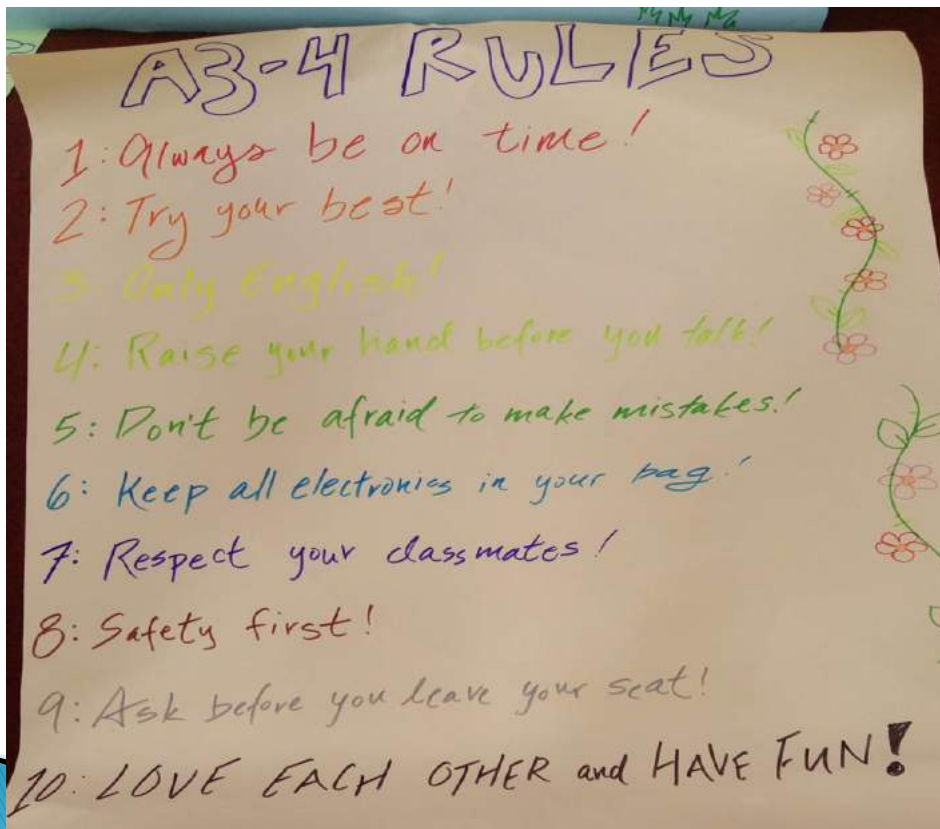 A3-4 RULES
1: Always be on time!
2: Try your best!
3. Only English!
4: Raise your hand before you talk!
5: Don't be afraid to make mistakes!
6: Keep all electronics in your bag!
7: Respect your classmates!
8: Safety first!
9: Ask before you leave your seat!
10: LOVE EACH OTHER and HAVE FUN!